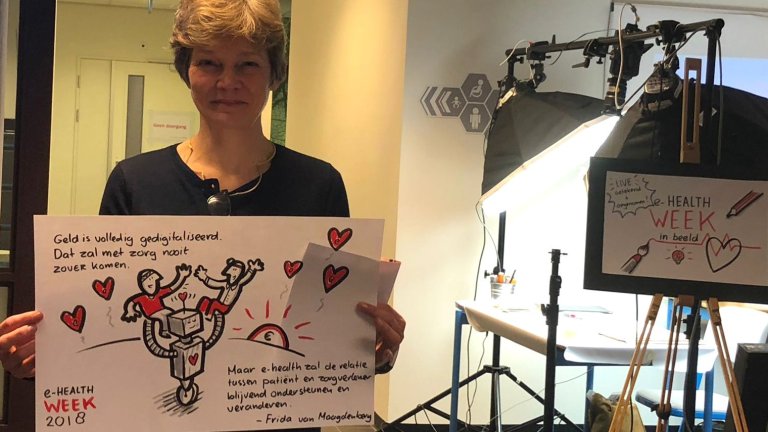 Geen doorgang
Geld is volledig gedigitaliseerd.
Dat zal met zorg nooit
zover komen.
€
Maar e-health zal de relatie
tussen patiënt en zorgverlener
blijvend ondersteunen en
veranderen.
– Frida van Maagdenberg
e-HEALTH
WEEK
2018
LIVE
getekend
+
e-HEALTH
WEEK
in beeld